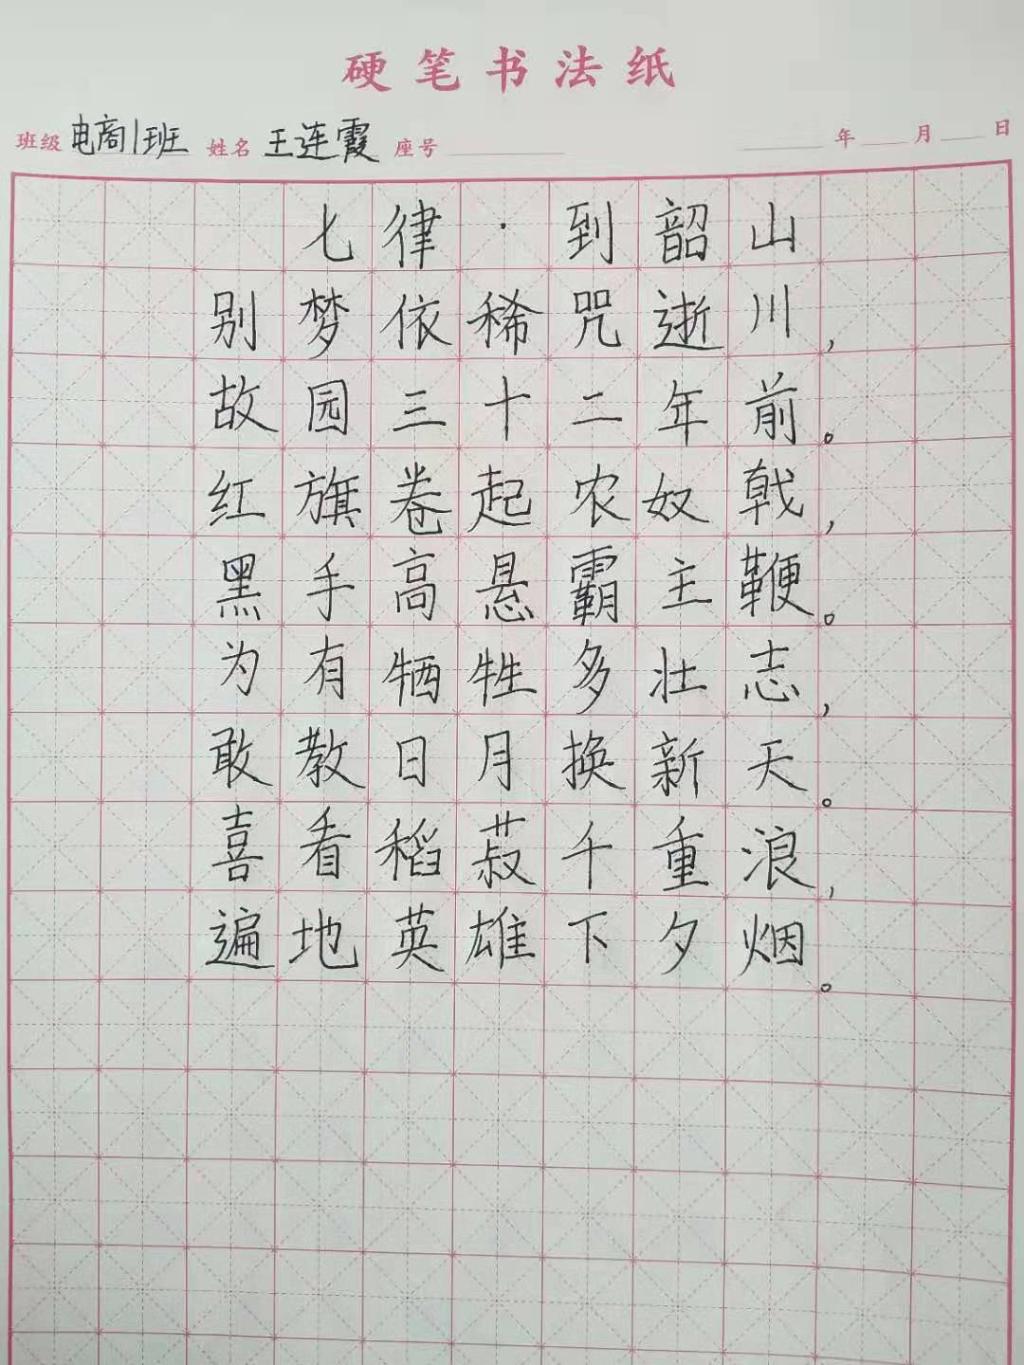 硬笔书法纸
班级 电商1班 姓名 王连霞 座号 年 月 日
七律·到韶山
别梦依稀咒逝川，
故园三十二年前。
红旗卷起农奴戟，
黑手高悬霸主鞭。
为有牺牲多壮志，
敢教日月换新天。
喜看稻菽千重浪，
遍地英雄下夕烟。